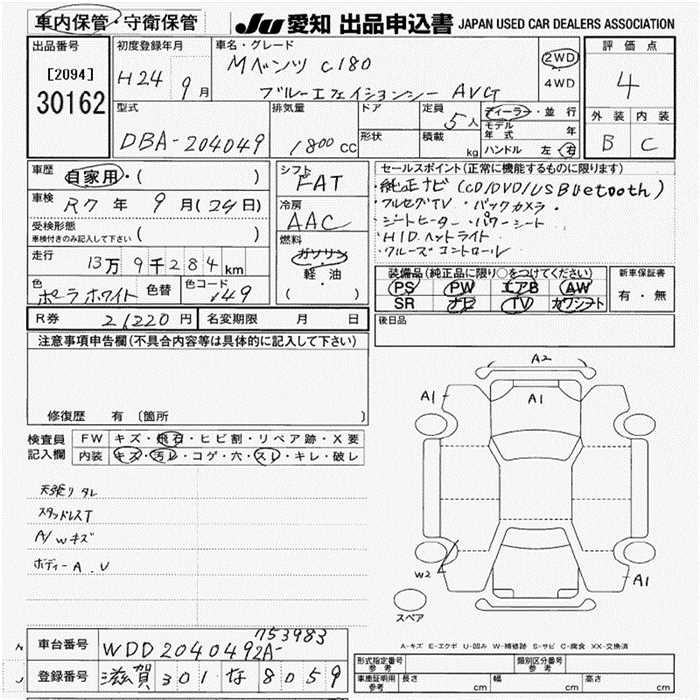 車内保管・守衛保管
JU 愛知 出品申込書 JAPAN USED CAR DEALERS ASSOCIATION
出品番号
[2094]
30162
初度登録年月
H24 9月
車名・グレード
Mベンツ C180
ブルーエフィシェンシー AVG
2WD
4WD
評価点
4
外装 内装
B C
型式
DBA-204049
排気量
1800cc
ドア
形状
定員
5人
積載
kg
ディーラー・並行
モデル年式 年
ハンドル 左 右
車歴
自家用・( )
車検
R7年 9月(24日)
受検形態
車検付きのみ記入して下さい ( )
走行
13万9千284km
色
ポーラホワイト
色替
色コード
149
シフト
FAT
冷房
AAC
燃料
ガソリン
軽・油
( )
セールスポイント(正常に機能するものに限ります)
・純正ナビ(CD/DVD/USBluetooth)
・フルセグTV ・バックカメラ・
・シートヒーター・パワーシート
・HIDヘッドライト
・クルーズコントロール
装備品(純正品に限り○をつけてください)
PS PW エアB AW
SR ナビ TV カワシート
新車保証書
有・無
R券 21220円
名変期限 月 日
後日品
注意事項申告欄(不具合内容等は具体的に記入して下さい)
修復歴 有 [箇所 ]
検査員
記入欄
FW キズ・飛石・ヒビ割・リペア跡・X要
内装 キズ・汚レ・コゲ・穴・スレ・キレ・破レ
天張りタレ
スタッドレスT
A/Wキズ
ボディーA.U
A2
A1
A1
W2
A1
スペア
A-キズ E-エクボ U-凹み W-補修跡 S-サビ C-腐食 XX-交換済
車台番号
WDD2040492A-
753983
登録番号
滋賀 301 な 8059
形式指定番号
参考
類別区分番号
参考
車庫証明用
参考
長さ cm
幅 cm
高さ cm